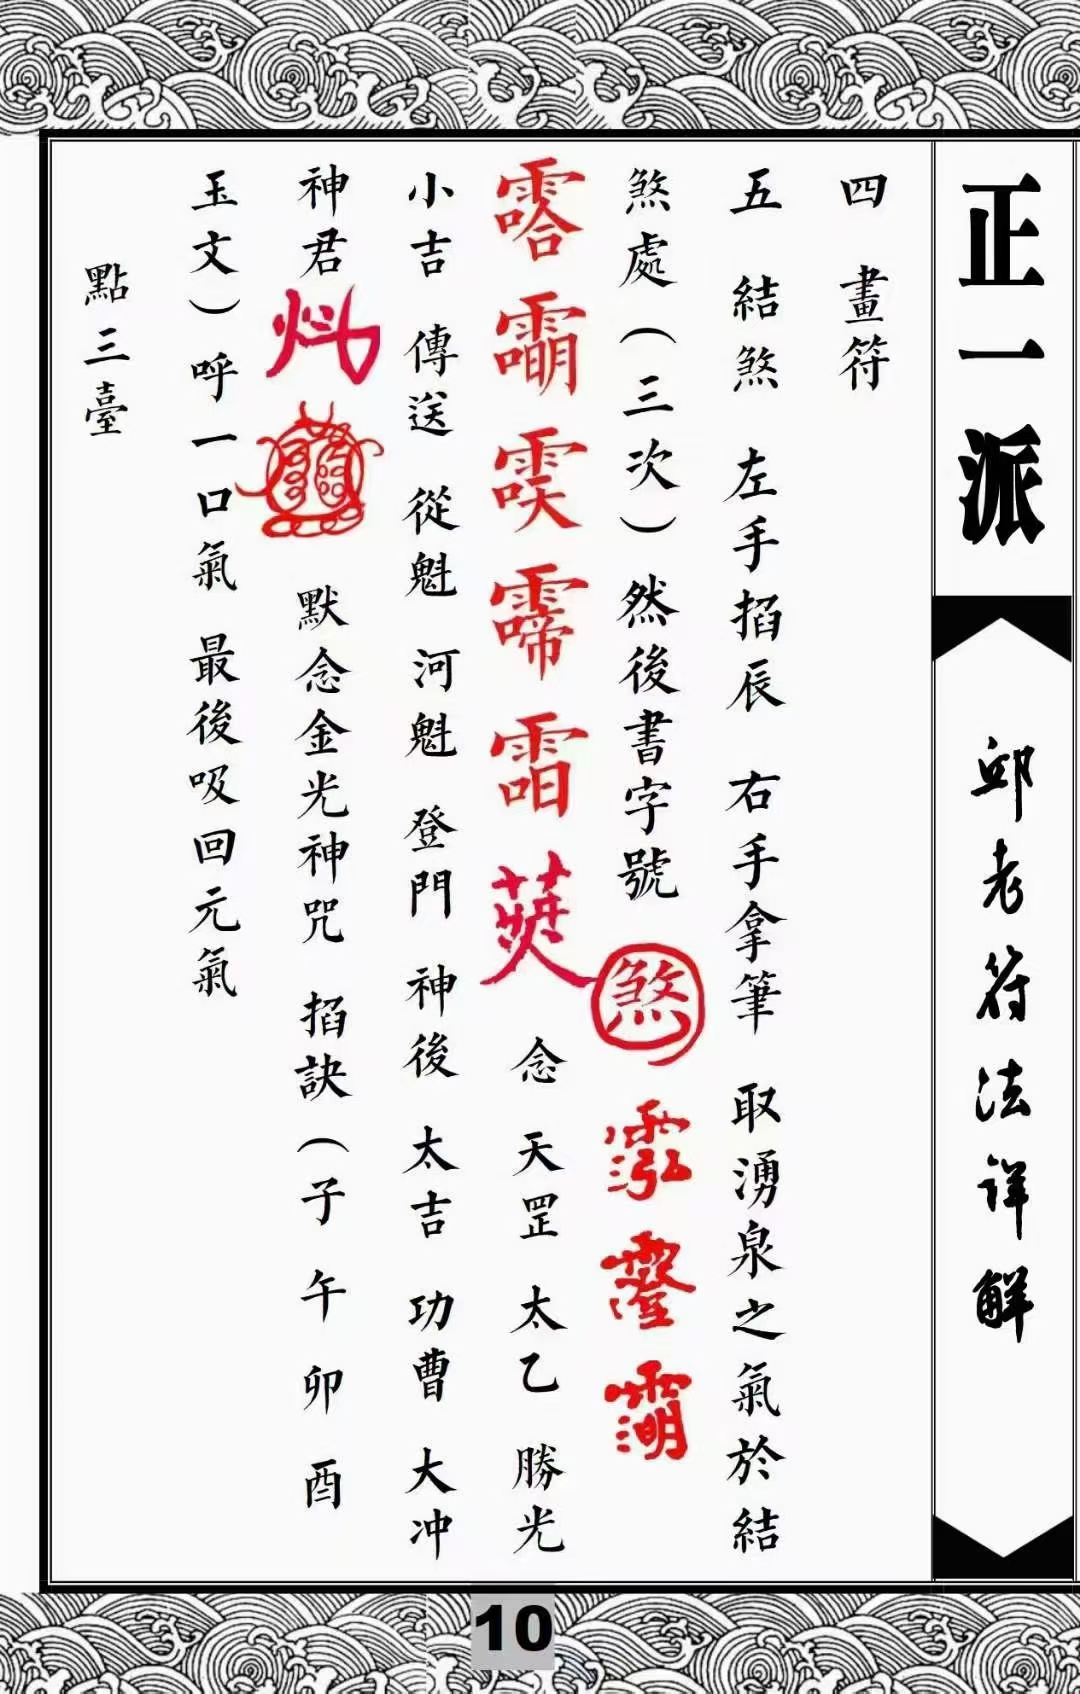 正一派
邱老符法详解
四 畫符
五 結煞 左手掐辰 右手拿筆 取湧泉之氣於結
煞處(三次)然後書字號 煞
念 天罡 太乙 勝光
小吉 傳送 從魁 河魁 登門 神後 太吉 功曹 大冲
神君 默念金光神咒 掐訣(子 午 卯 酉
玉文)呼一口氣 最後吸回元氣
點三臺
10